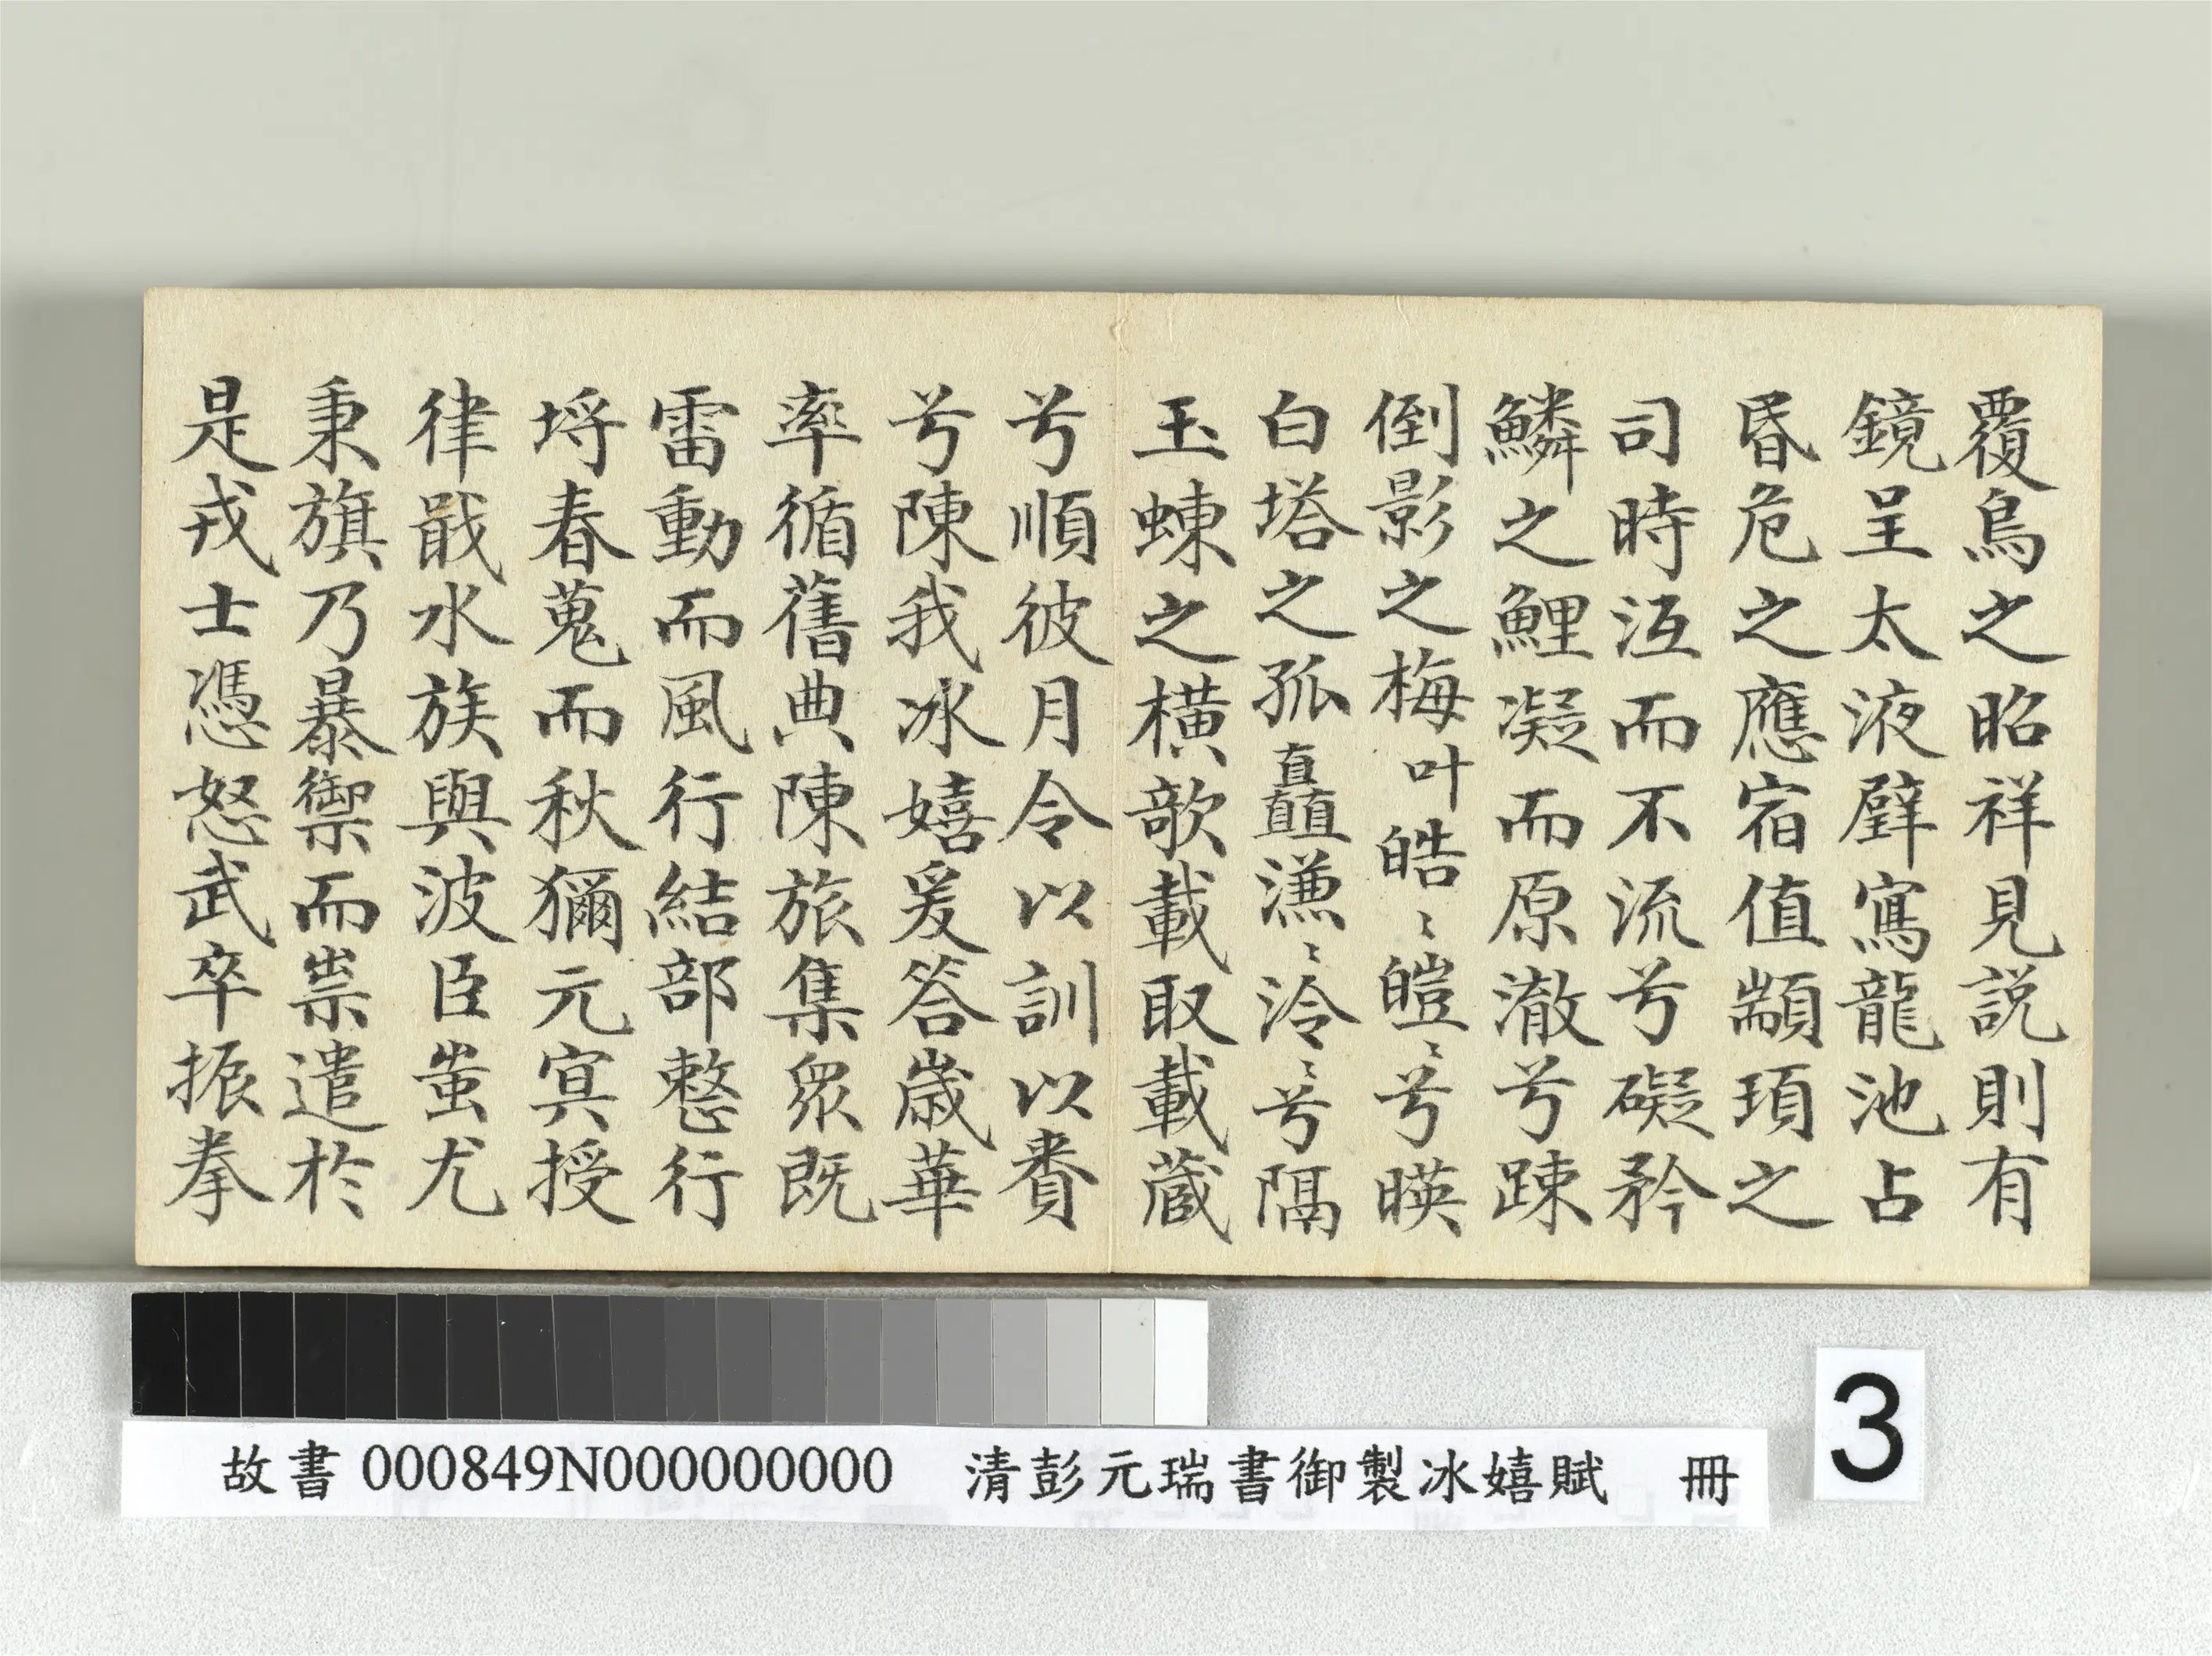 覆鳥之昭祥見説則有
鏡呈太液璧寫龍池占
昬危之應宿值顓頊之
司時沍而不流兮礙矜
鱗之鯉凝而原澈兮踈
倒影之梅叶皓〻皚〻兮暎
白塔之孤矗溓〻泠〻兮隔
玉蝀之橫欹載取載蔵
兮順彼月令以訓以賚
兮陳我冰嬉爰答歲華
率循舊典陳旅集眾既
雷動而風行結部整行
埒春蒐而秋獮元冥授
律戢水族與波臣蚩尤
秉旗乃暴禦而祟遣於
是戎士憑怒武卒振拳
故書 000849N000000000 清彭元瑞書御製冰嬉賦 冊
3